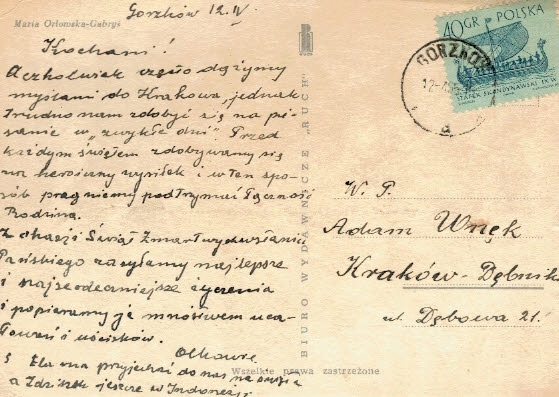 Maria Orłowska-Gabryś
Gorzków 12.IV
Kochani!
Aczkolwiek często dążymy
myślami do Krakowa, jednak
trudno nam zdobyć się na pi-
sanie w „zwykłe dni". Przed
każdym świętem zdobywamy się
na heroiczny wysiłek i w ten spo-
sób pragniemy podtrzymać łączność
Rodzinną.
Z okazji Świąt Zmartwychwstania
Pańskiego zasyłamy najlepsze
i najserdeczniejsze życzenia
i popieramy je mnóstwem uca-
łowań i uścisków.
Ela ma przyjechać do nas na
a Zdzisiek jeszcze w Indonezji
BIURO WYDAWNICZE „RUCH"
Wszelkie prawa zastrzeżone
40 GR POLSKA
STATEK SKANDYNAWSKI
GORZKÓW
a
W. P.
Adam Wnęk
Kraków-Dębniki
ul. Dębowa 21